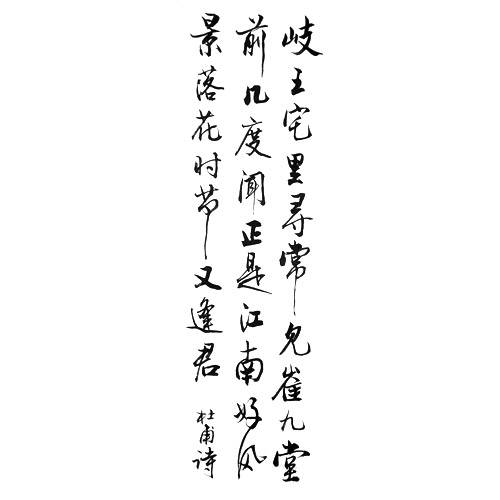 岐王宅里寻常见崔九堂
前几度闻正是江南好风
景落花时节又逢君
杜甫诗